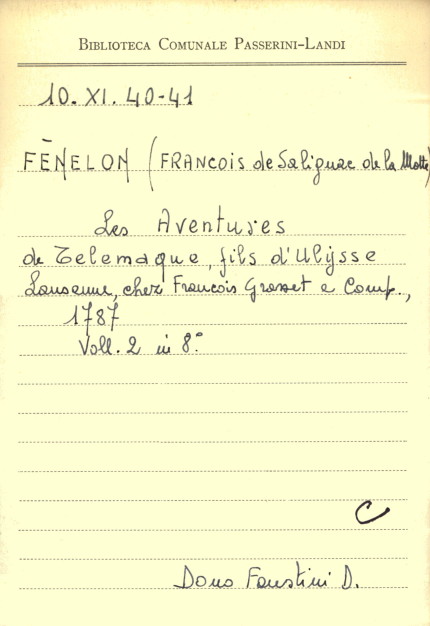 BIBLIOTECA COMUNALE PASSERINI-LANDI
10. XI. 40-41
FÉNELON (FRANCOIS de Salignac de la Motte)
Les Aventures
de Telemaque, fils d'Ulysse
Lausanne, chez Francois Grasset e Comp.,
1787
Voll. 2 in 8.°
C
Dono Faustini D.